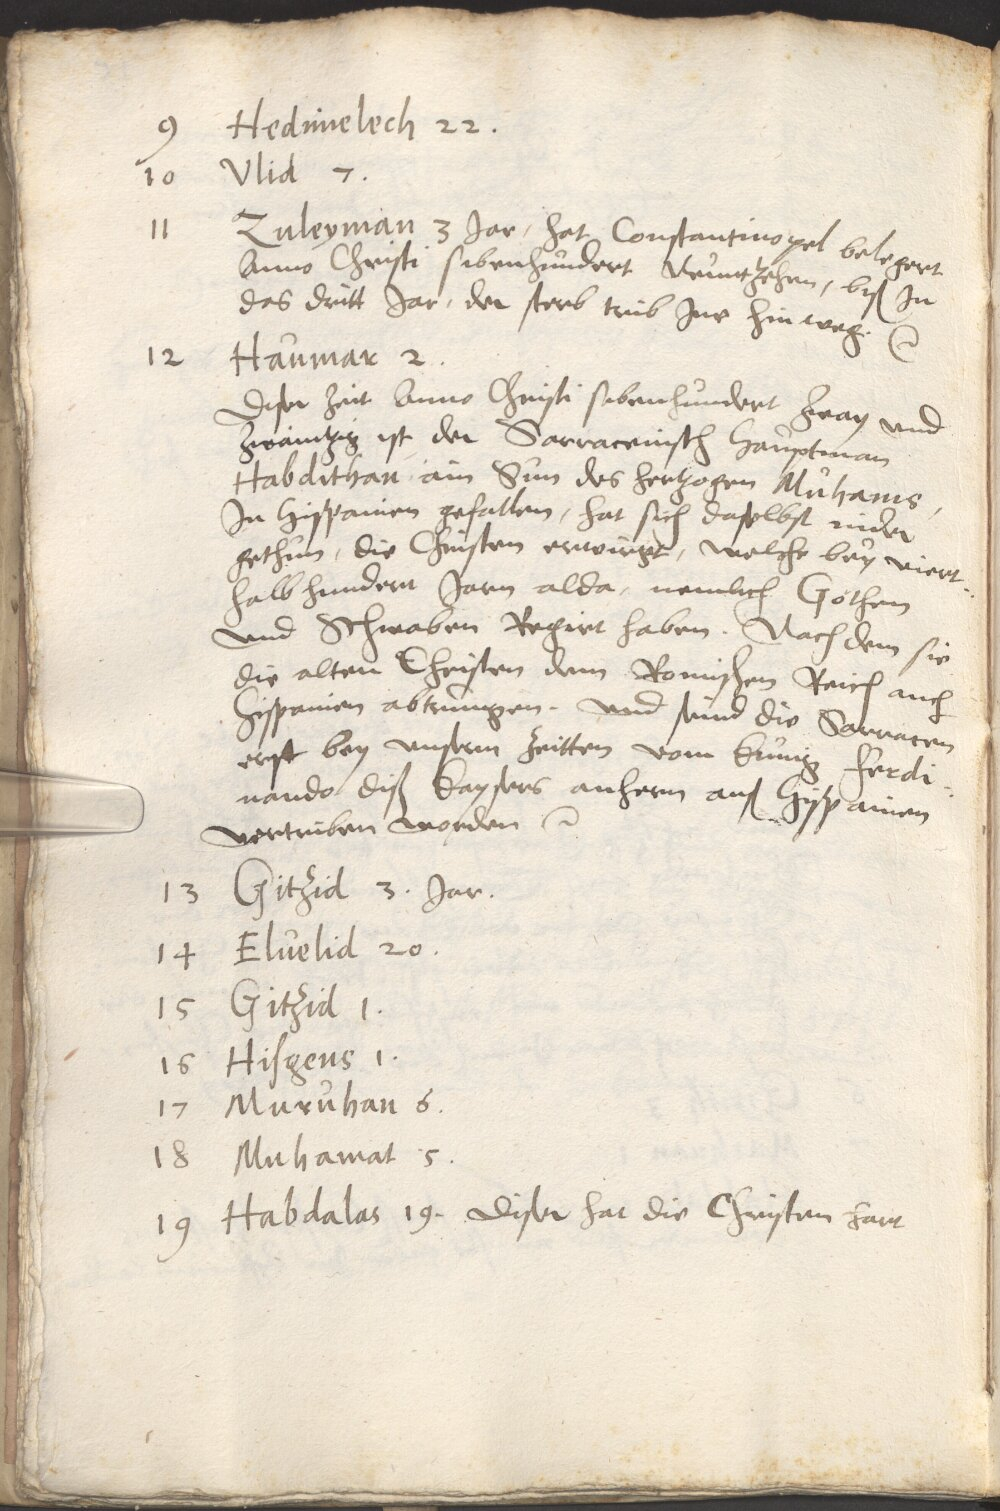 9 Hedimelech 22.
10 Vlid 7.
11 Zuleyman 3 Jar, hat Constantinopel belegert
Anno Christi sibenhundert Neuntzehen, biß In
das dritt Jar, der sterb trib Jne hinweg.
12 Haumar 2.
Diser Zeit Anno Christi sibenhundert zway und
zwaintzig ist der Sarracenisch Hauptman
Habdithan ain Sun des hertzogen Muhams,
In Hispanien gefallen, hat sich daselbst nider
gethun, die Christen erwürgt, welche bey viert-
halb hundert Jarn alda, nemlich Gothen
und Schwaben Regirt haben. Nach dem sie
die alten Christen dem Romischen Reich auch
Hispanien abtrungen. Und seind die Sarracen
erst bey unsern Zeitten vom Künig Ferdi-
nando diß Kaysers anhern auß Hispanien
vertriben worden
13 Gitzid 3. Jar.
14 Eluelid 20.
15 Gitzid 1.
16 Hisgens 1.
17 Muruhan 6.
18 Muhamat 5.
19 Habdalas 19. Diser hat die Christen hart